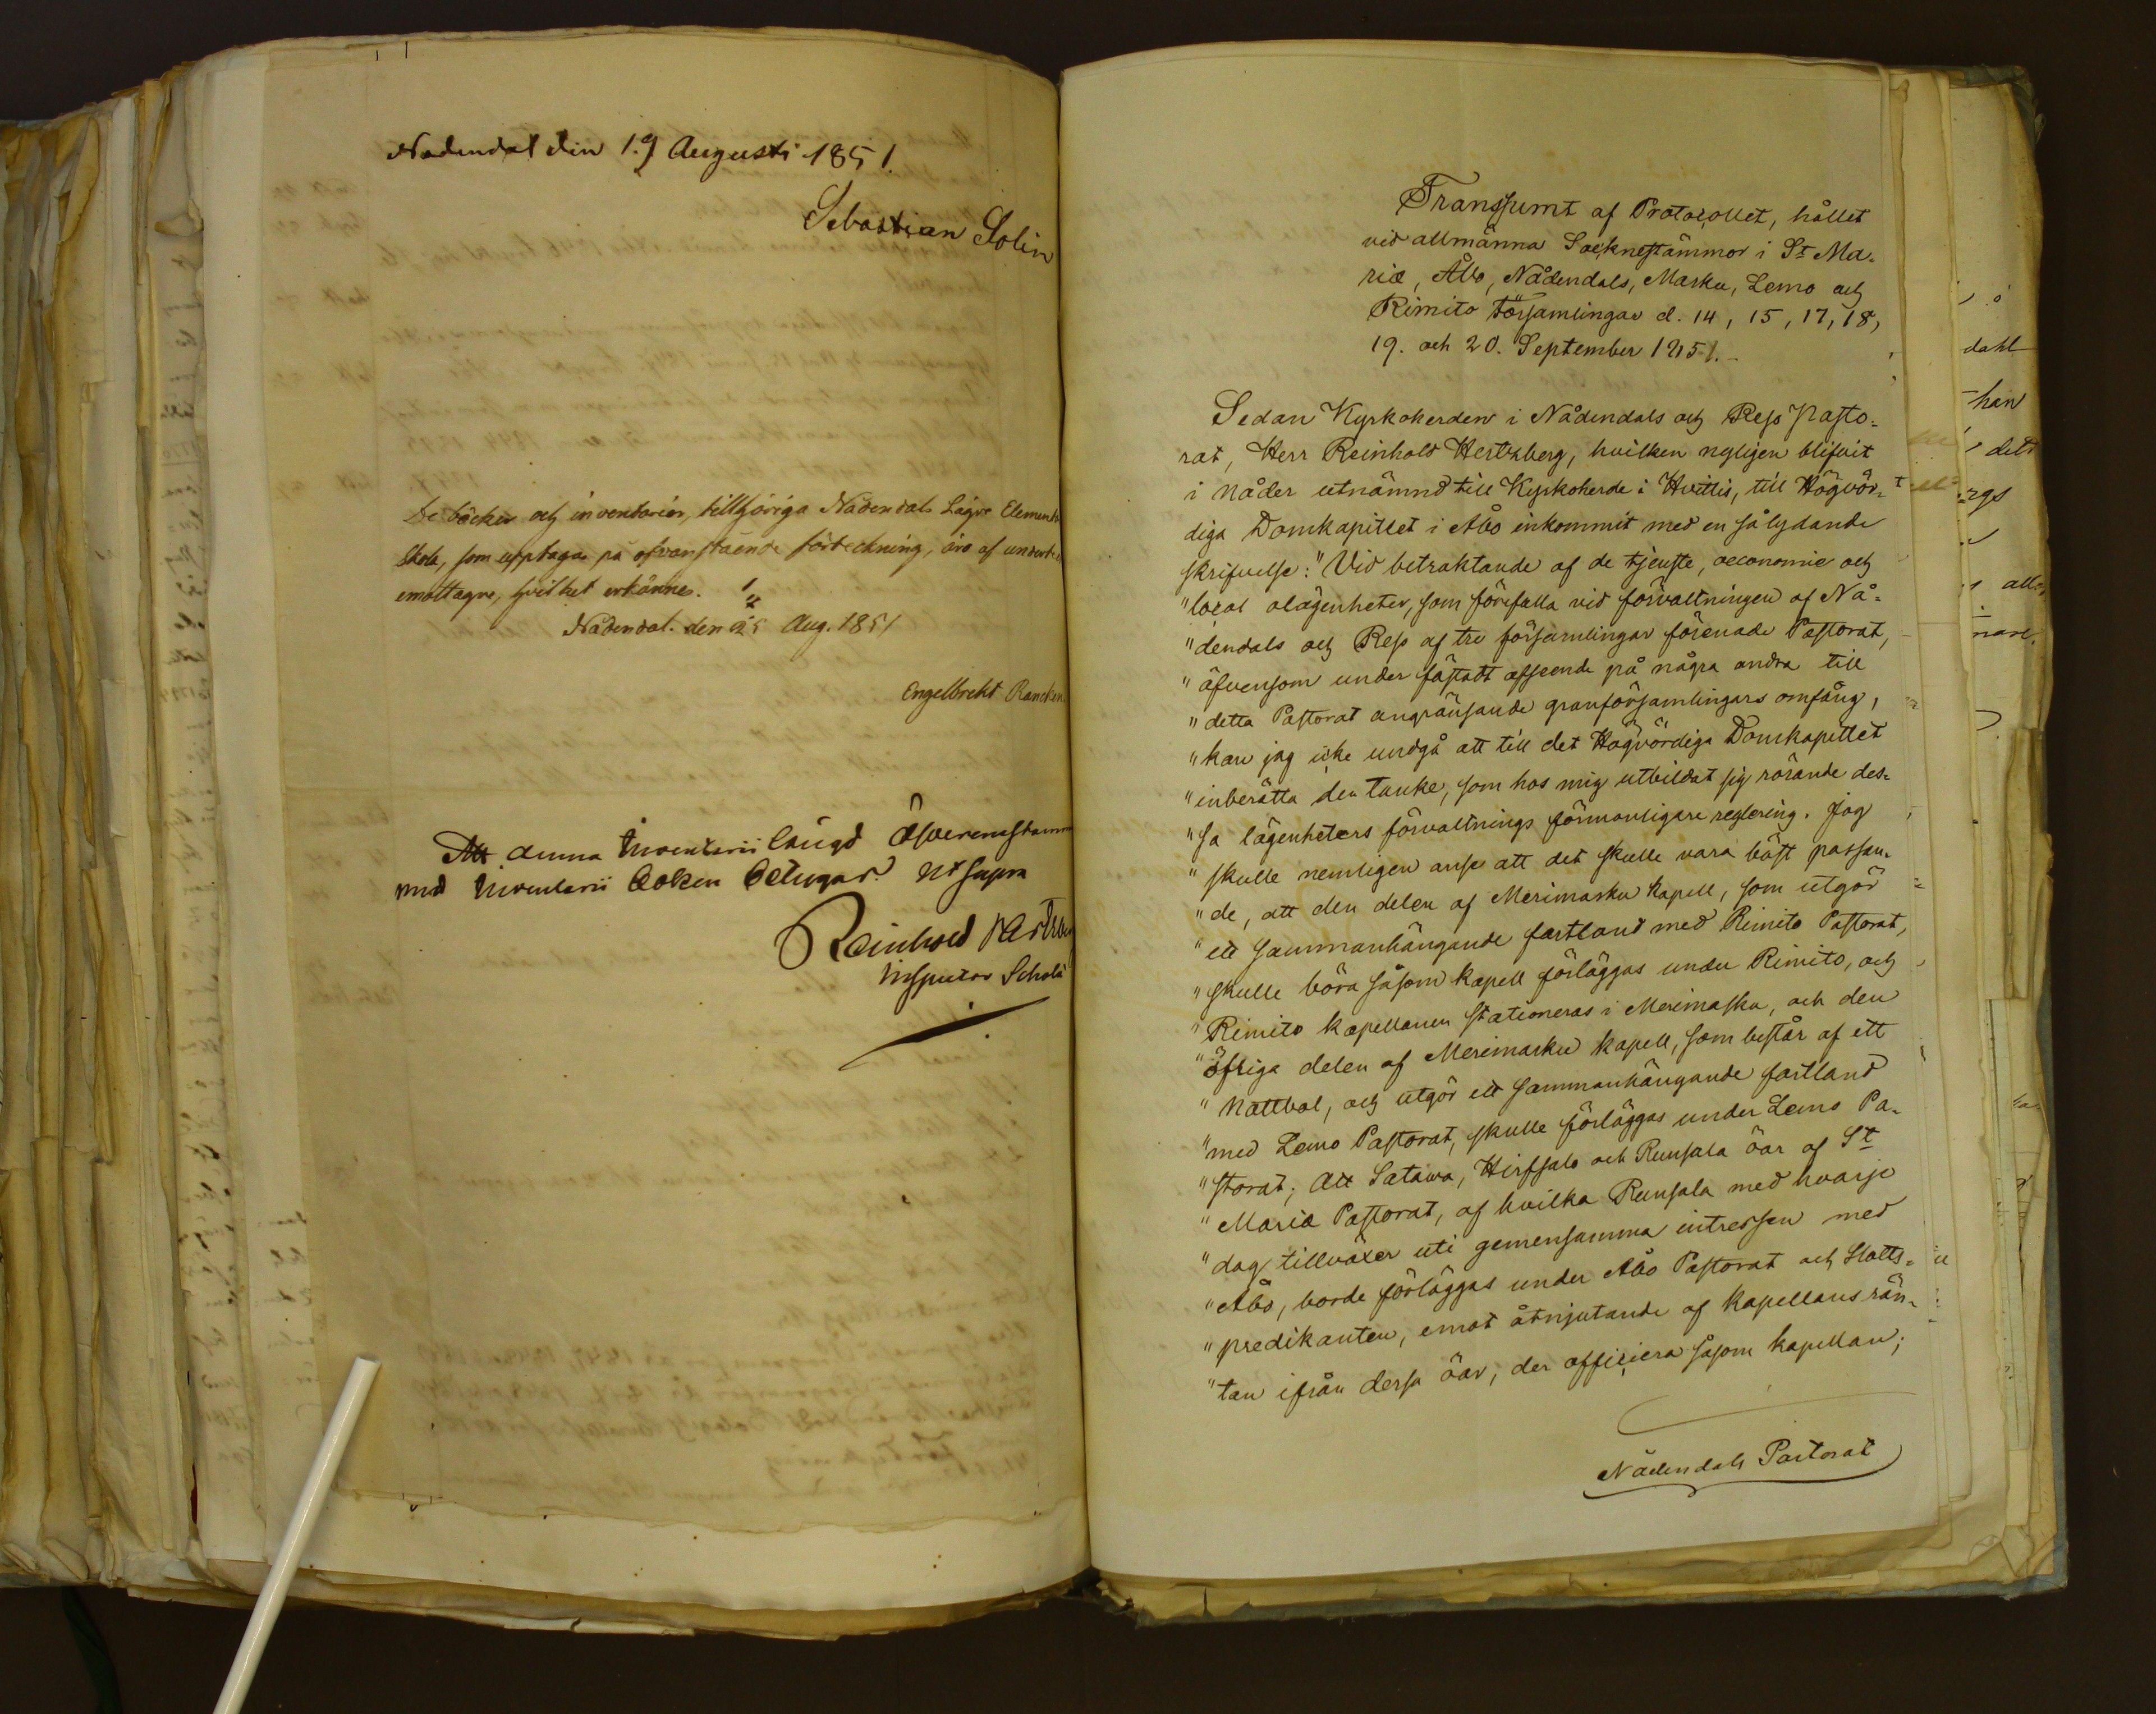 Nådendal den 19 Augusti 1851.
Sebastian Solin
De böcker och inventarier, tillhöriga Nådendals Lägre Element
Skola, som upptagas på ofvanstående förteckning, äro af underte
emottagne, hvilket erkännes.
Nådendal. den 25 Aug. 1851
Engelbrekt Rancken
Att denna Inventarii längd öfverensstämm
med Inventarii boken betygar. Ut supra
Reinhold
Inspector Scholæ
Transsumt af Protocollet, hållet
vid allmänna Socknestämmor i St Ma-
riæ, Åbo, Nådendals, Masku, Lemo och
Rimito Församlingar d. 14, 15, 17, 18,
19. och 20. September 1851.
Sedan Kyrkoherden i Nådendals och Reso Pasto-
rat, Herr Reinhold Hertzberg, hvilken nyligen blifvit
i Nåder utnämnd till Kyrkoherde i Hvittis, till Högvör-
diga Domkapitlet i Åbo inkommit med en så lydande
skrifvelse: "Vid betraktande af de tjenste, oeconomie och
"local olägenheter, som förefalla vid förvaltningen af Nå-
"dendals och Reso af tre församlingar förenade Pastorat,
"äfvensom under fästadt afseende på några andra till
"detta Pastorat angränsande granförsamlingars omfång,
"kan jag icke undgå att till det Högvördiga Domkapitlet
"inberätta den tanke, som hos mig utbildat sig rörande des-
"sa lägenheters förvaltnings förmonligare reglering. Jag
"skulle nemligen anse att det skulle vara bäst passan-
"de, att den delen af Merimasku Kapell, som utgör
"ett sammanhängande fastland med Rimito Pastorat,
"skulle böra såsom kapell förläggas under Rimito, och
"Rimito kapellanen stationeras i Merimasku, och den
"öfriga delen af Merimasku kapell, som består af ett
"Nattbol, och utgör ett sammanhängande fastland
"med Lemo Pastorat, skulle förläggas under Lemo Pa-
"storat; Att Satawa, Hirfsalo och Runsala öar af St
"Mariæ Pastorat, af hvilka Runsala med hvarje
"dag tillväxer uti gemensamma intressen med
"Åbo, borde förläggas under Åbo Pastorat och Slotts-
"predikanten, emot åtnjutande af Kapellans rän-
"tan ifrån dessa öar, der officiera såsom kapellan;
Nådendals Pastorat
dahl
han